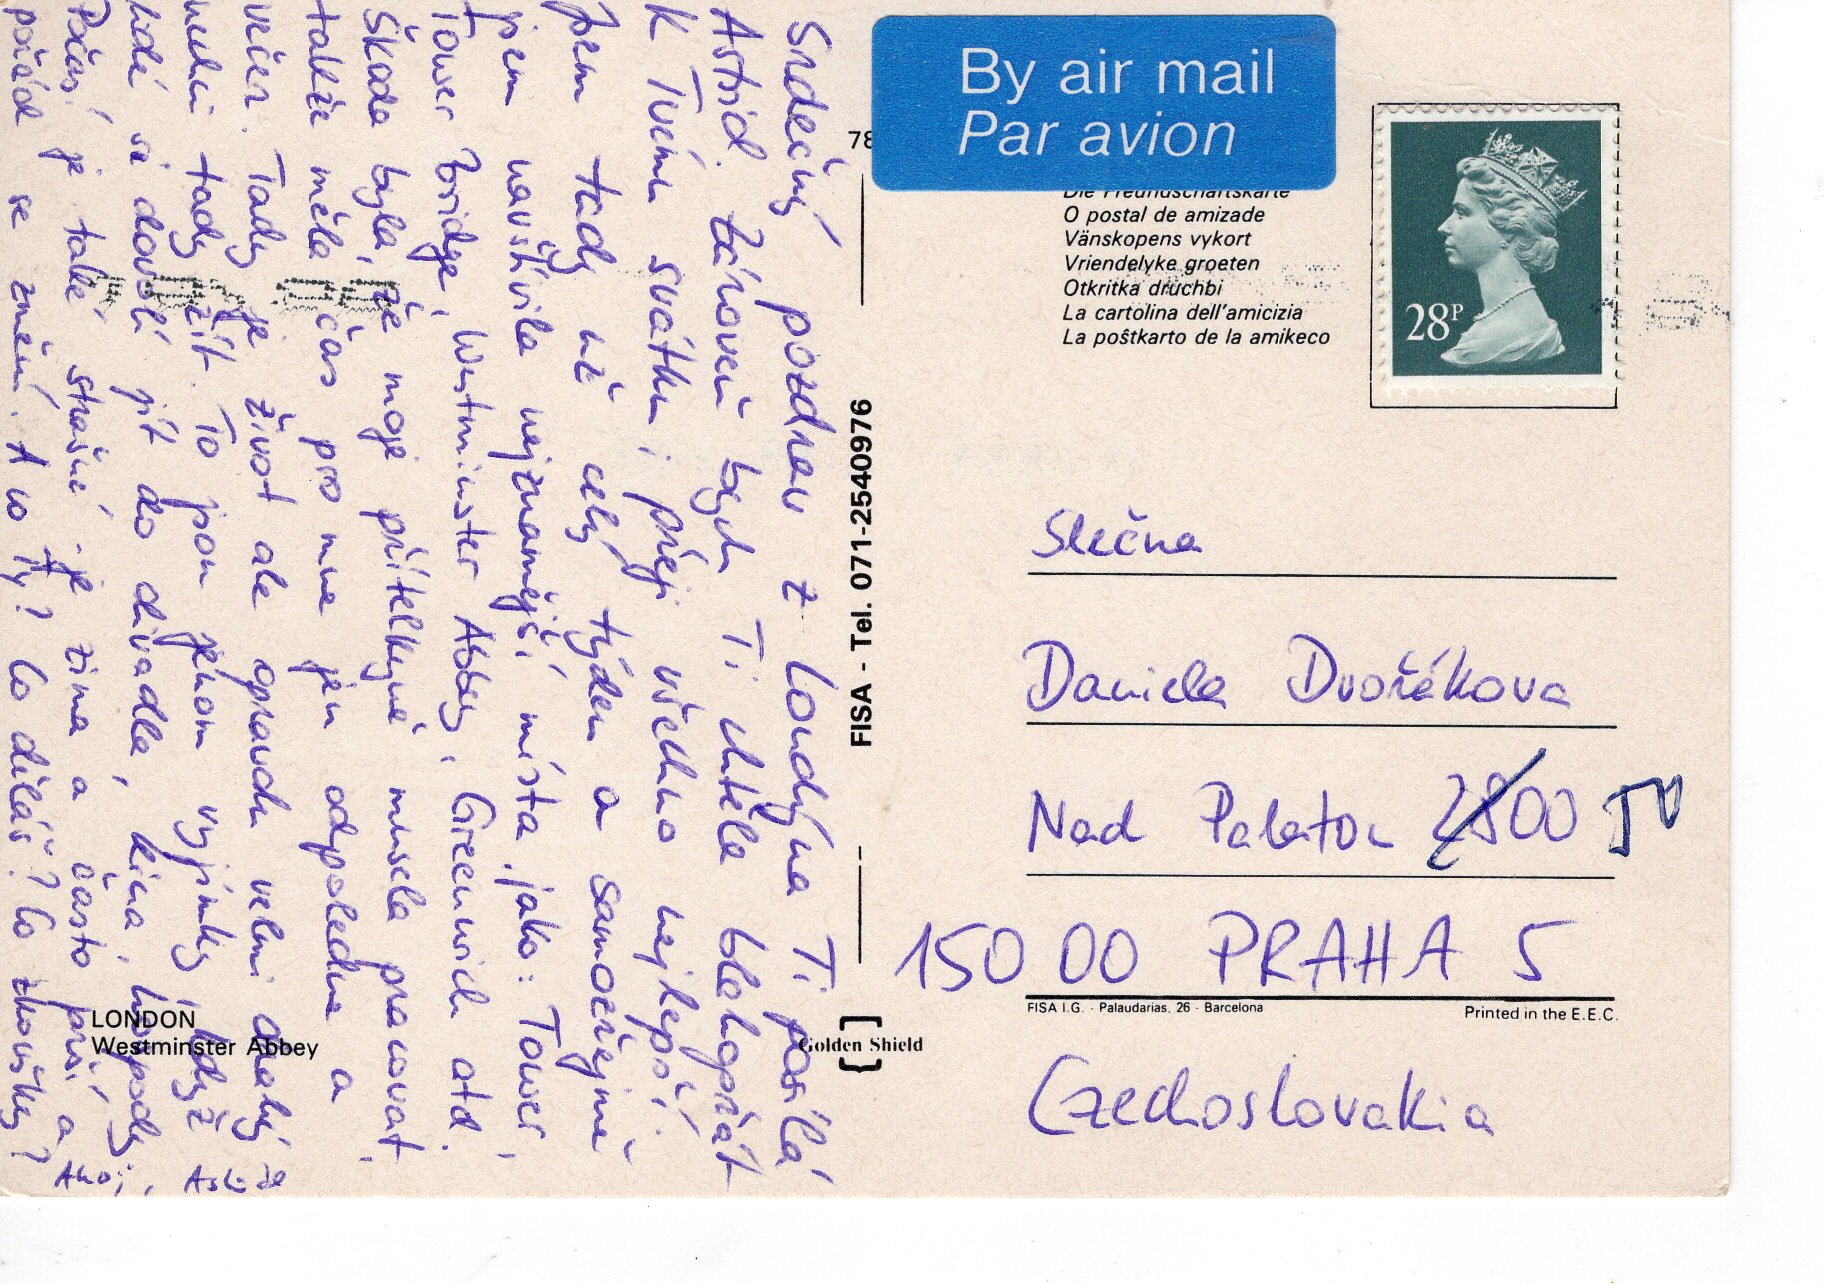 Srdečný pozdrav z Londýna Ti posílá
Astrid. Zároveň bych Ti chtěla blahopřát
k Tvému svátku i přeji všechno nejlepší.
Jsem tady už celý týden a samozřejmě
jsem navštívila nejznámější místa jako: Tower,
Tower Bridge, Westminster Abbey, Greenwich atd.
Škoda byla, že moje přítelkyně musela pracovat,
takže měla čas pro mne jen odpoledne a
večer. Tady je život ale opravdu velmi drahý že
nuluí tady žít. To jsou jenom vyjímky, když
lidé si dovolí jít do divadla, kina, hospody.
Počasí je také strašné je zima a často prší a
pořád se změní. A co Ty? Co děláš? Co zkoušky?
Ahoj,
By air mail
Par avion
78
Die Freundschaftskarte
O postal de amizade
Vänskopens vykort
Vriendelyke groeten
Otkritka druchbi
La cartolina dell'amicizia
La poŝtkarto de la amikeco
28P
FISA - Tel. 071-2540976
Slečna
Daniela Dvořáková
Nad Palatou 2800 50
150 00 PRAHA 5
FISA I.G. - Palaudarias, 26 - Barcelona
Printed in the E.E.C.
Czechoslovakia
LONDON
Westminster Abbey
Golden Shield